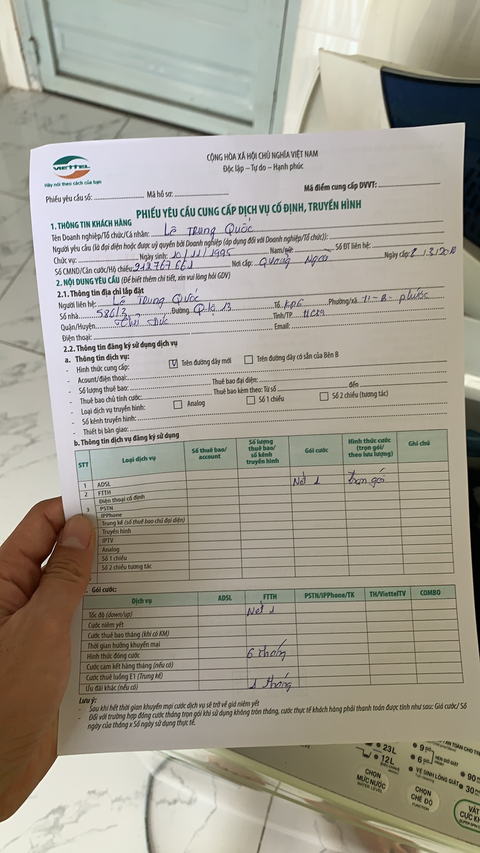 VIETTEL
Hãy nói theo cách của bạn
CỘNG HÒA XÃ HỘI CHỦ NGHĨA VIỆT NAM
Độc lập – Tự do – Hạnh phúc
Phiếu yêu cầu số: Mã hồ sơ: Mã điểm cung cấp DVVT:
PHIẾU YÊU CẦU CUNG CẤP DỊCH VỤ CỐ ĐỊNH, TRUYỀN HÌNH
1. THÔNG TIN KHÁCH HÀNG
Tên Doanh nghiệp/Tổ chức/Cá nhân: Lê Trung Quốc
Người yêu cầu (là đại diện hoặc được uỷ quyền bởi Doanh nghiệp (áp dụng đối với Doanh nghiệp/Tổ chức)):
Chức vụ: Ngày sinh: 10/11/1995 Nam/nữ: Số ĐT liên hệ:
Số CMND/Căn cước/Hộ chiếu: 212767661 Nơi cấp: Quảng Ngãi Ngày cấp:
2. NỘI DUNG YÊU CẦU (Để biết thêm chi tiết, xin vui lòng hỏi GDV)
2.1. Thông tin địa chỉ lắp đặt
Người liên hệ: Lê Trung Quốc
Số nhà: 586/3 Đường: Ql 13 Tổ: KP6 Phường/xã: H-B-phước
Quận/Huyện: Thủ Đức Tỉnh/TP: HCM
Điện thoại: Email:
2.2. Thông tin đăng ký sử dụng dịch vụ
a. Thông tin dịch vụ:
- Hình thức cung cấp: Trên đường dây mới Trên đường dây có sẵn của Bên B
- Acount/điện thoại:
- Số lượng thuê bao: Thuê bao đại diện:
- Thuê bao chủ tính cước: Thuê bao kèm theo: Từ số đến
- Loại dịch vụ truyền hình: Analog Số 1 chiều Số 2 chiều (tương tác)
- Số kênh truyền hình:
- Thiết bị bàn giao:
b. Thông tin dịch vụ đăng ký sử dụng
STT Loại dịch vụ Số thuê bao/ account Số lượng thuê bao/ số kênh truyền hình Gói cước Hình thức cước (trọn gói/ theo lưu lượng) Ghi chú
1 ADSL Net 1 trọn gói
2 FTTH
Điện thoại cố định
3 PSTN
IPPhone
Trung kế (số thuê bao đại diện)
Truyền hình
IPTV
Analog
Số 1 chiều
Số 2 chiều tương tác
Gói cước:
Dịch vụ ADSL FTTH PSTN/IPPhone/TK TH/ViettelTV COMBO
Tốc độ (down/up) Net 1
Cước niêm yết
Cước thuê bao tháng (khi có KM)
Thời gian hưởng khuyến mại
Hình thức đóng cước 6 tháng
Cước cam kết hàng tháng (nếu có)
Cước thuê luồng E1 (Trung kế)
Ưu đãi khác (nếu có) 1 tháng
Lưu ý:
- Sau khi hết thời gian khuyến mại cước dịch vụ sẽ trở về giá niêm yết
- Đối với trường hợp đóng cước tháng trọn gói khi sử dụng không tròn tháng, cước thực tế khách hàng phải thanh toán được tính như sau: Giá cước/ Số
ngày của tháng x Số ngày sử dụng thực tế.
23L
12L
CHỌN
MỨC NƯỚC
WATER LEVEL
9
6
HẸN GIỜ GIẶT
VỆ SINH LỒNG GIẶT
CHỌN
CHẾ ĐỘ
FUNCTION
90
30
VẮT
CỰC KH